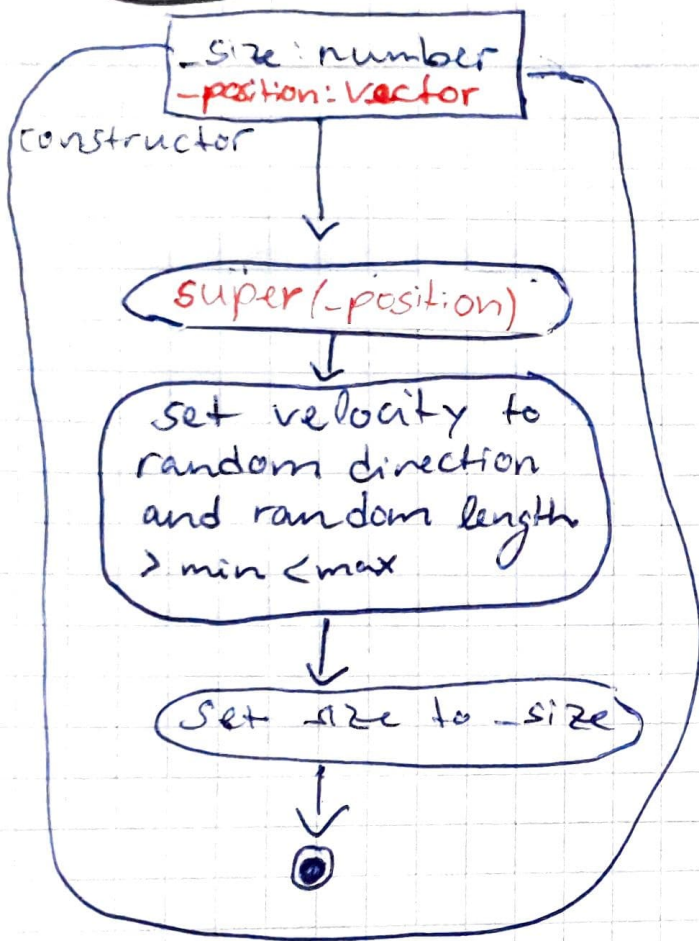 _size: number
_position: Vector
constructor
super(_position)
set velocity to
random direction
and random length
> min < max
set size to _size